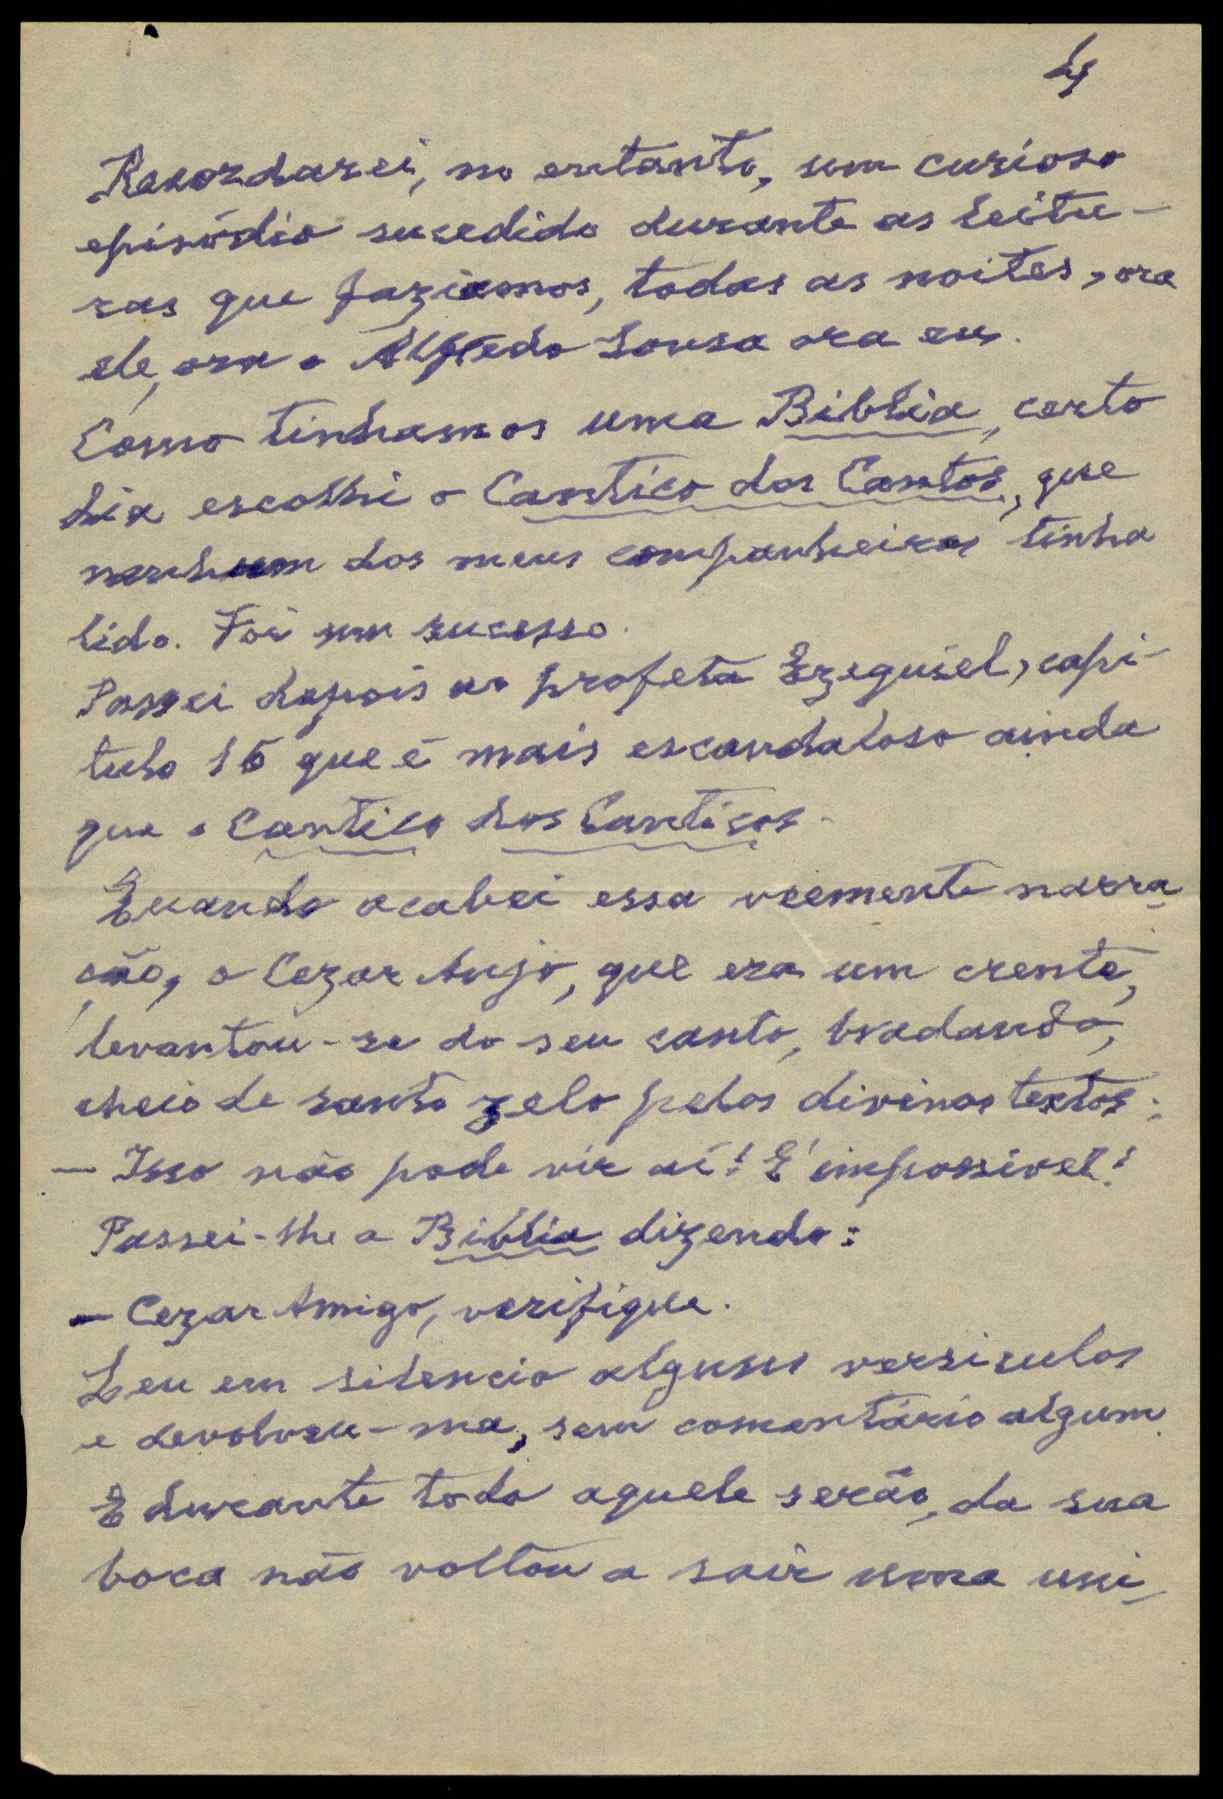 4
Recordarei, no entanto, um curioso
episódio sucedido durante as leitu-
ras que faziamos, todas as noites, ora
ele, ora o Alfredo Sousa ora eu.
Como tinhamos uma Biblia, certo
dia escolhi o Cantico dos Cantos, que
nenhum dos meus companheiros tinha
lido. Foi um sucesso.
Passei depois ao profeta Ezequiel, capi-
tulo 16 que é mais escandaloso ainda
que o Cantico dos Canticos.
Quando acabei essa veemente narra-
ção, o Cezar Anjo, que era um crente,
levantou-se do seu canto, bradando,
cheio de santo zelo pelos divinos textos:
— Isso não pode vir aí! É impossivel!
Passei-lhe a Biblia dizendo:
— Cezar Amigo, verifique.
Leu em silencio alguns versiculos
e devolveu-ma, sem comentário algum.
E durante todo aquele serão, da sua
boca não voltou a sair uma uni-